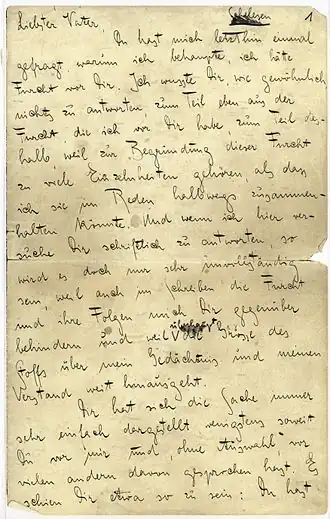 Schelesen
1
Liebster Vater,
Du hast mich letzthin einmal
gefragt warum ich behaupte, ich hätte
Furcht vor Dir. Ich wusste Dir, wie gewöhnlich
nichts zu antworten, zum Teil eben aus der
Furcht die ich vor Dir habe, zum Teil des-
halb weil zur Begründung dieser Furcht
zu viele Einzelnheiten gehören, als dass
ich sie im Reden halbwegs zusammen-
halten könnte. Und wenn ich hier ver-
suche Dir schriftlich zu antworten, so
wird es doch nur sehr unvollständig
sein, weil auch im Schreiben die Furcht
und ihre Folgen mich Dir gegenüber
behindern und weil die Grösse des
Stoffs über mein Gedächtnis und meinen
Verstand weit hinausgeht.
Dir hat sich die Sache immer
sehr einfach dargestellt, wenigstens soweit
Du vor mir und, ohne Auswahl, vor
vielen andern davon gesprochen hast. Es
schien Dir etwa so zu sein: Du hast